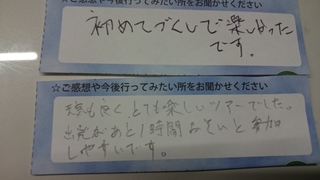 ☆ご感想や今後行ってみたい所をお聞かせください
初めてづくしで楽しかった
です。
☆ご感想や今後行ってみたい所をお聞かせください
天気も良く、とても楽しいツアーでした。
出発があと1時間おそいと参加
しやすいです。